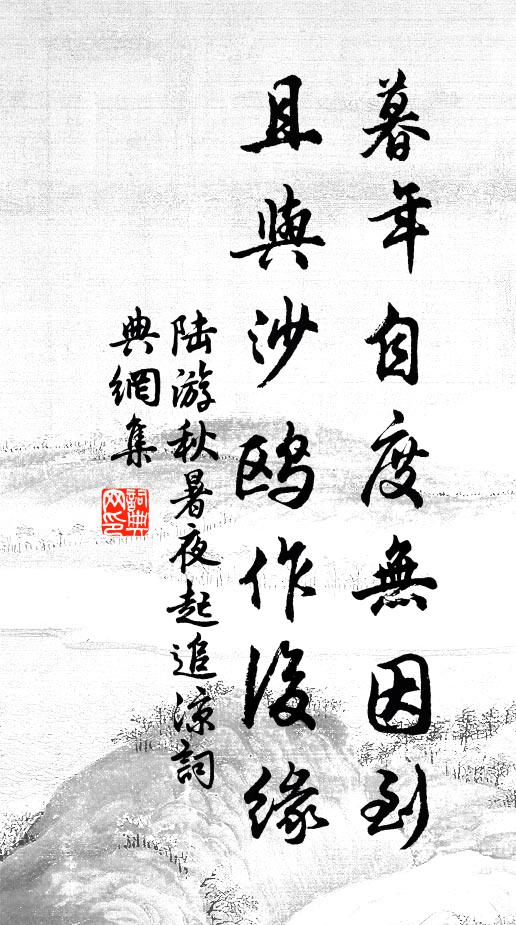 暮年自度無因到
且與沙鸥作後緣
陆游秋暑夜起追凉詞
典網集
詞典
网印